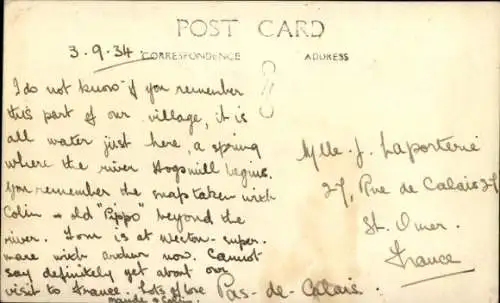 POST CARD
3.9.34
CORRESPONDENCE
ADDRESS
I do not know if you remember
this part of our village, it is
all water just here, a spring
where the river Hogsmill begins.
you remember the snap taken with
Colin & old "Pippo" beyond the
river. Tom is at Weston-super-
mare with now. Cannot
say definitely yet about our
visit to France. Lots of love
maude & Colin.
Mlle. J. Laporterie
27, Rue de Calais 27
St. Omer.
France
Pas-de-Calais.